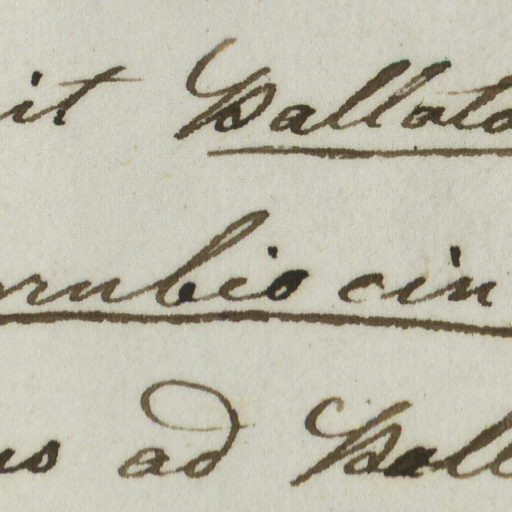 it Ballota
rubio cin
us ad Ball